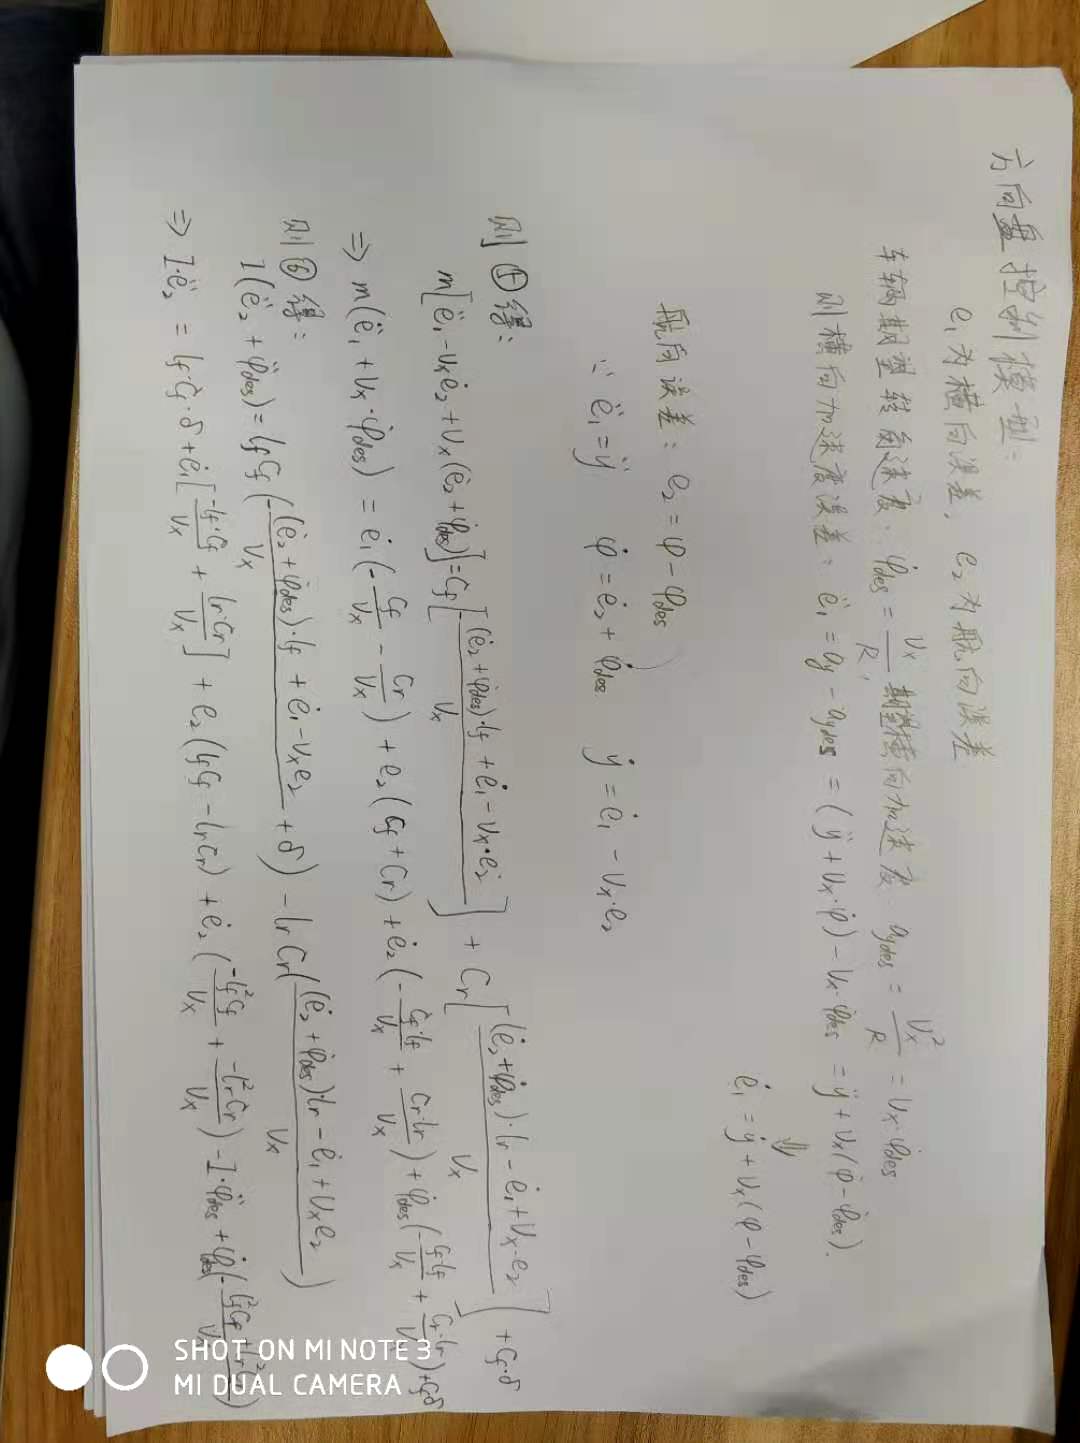 方向盘控制模型:
e₁为横向误差, e₂为航向误差
车辆期望转向速度: φ̇des = Vx/R, 期望横向加速度 aydes = Vx²/R = Vx·φ̇des
则横向加速度误差: ë₁ = ay - aydes = (ÿ + Vx·φ̇) - Vx·φ̇des = ÿ + Vx(φ̇ - φ̇des).
⇓
ė₁ = ẏ + Vx(φ - φdes)
航向误差: e₂ = φ - φdes )
∵ ë₁ = ÿ φ̇ = ė₂ + φ̇des ẏ = ė₁ - Vx·e₂
则⑤得:
m[ë₁ - Vxė₂ + Vx(ė₂ + φ̇des)] = Cf[-((ė₂ + φ̇des)·lf + ė₁ - Vx·e₂)/Vx] + Cr[((ė₂ + φ̇des)·lr - ė₁ + Vx·e₂)/Vx] + Cf·δ
⇒ m(ë₁ + Vx·φ̇des) = ė₁(-Cf/Vx - Cr/Vx) + e₂(Cf + Cr) + ė₂(-Cf·lf/Vx + Cr·lr/Vx) + φ̇des(-Cf·lf/Vx + Cr·lr/V) + Cfδ
则⑥得:
I(ë₂ + φ̈des) = lfCf(-((ė₂ + φ̇des)·lf + ė₁ - Vxe₂)/Vx + δ) - lrCr(((ė₂ + φ̇des)·lr - ė₁ + Vxe₂)/Vx)
⇒ I·ë₂ = lfCf·δ + ė₁[-lf·Cf/Vx + lr·Cr/Vx] + e₂(lfCf - lrCr) + ė₂(-lf²Cf/Vx + -lr²Cr/Vx) - I·φ̈des + φ̇des(-lf²Cf
SHOT ON MI NOTE 3
MI DUAL CAMERA